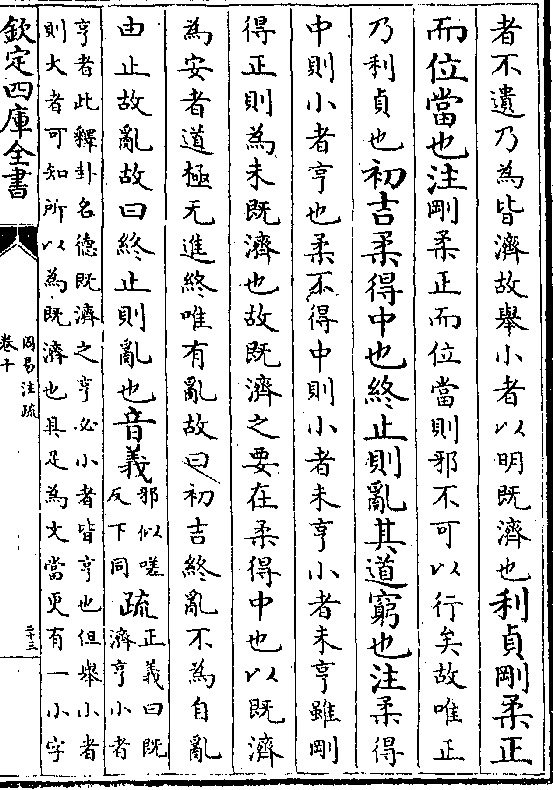 者不遺乃為皆濟故舉小者以明既濟也利貞剛柔正
而位當也注剛柔正而位當則邪不可以行矣故唯正
乃利貞也初吉柔得中也終止則亂其道窮也注柔得
中則小者亨也柔不得中則小者未亨小者未亨雖剛
得正則為未既濟也故既濟之要在柔得中也以既濟
為安者道極无進終唯有亂故曰初吉終亂不為自亂
由止故亂故曰終止則亂也音義邪似嗟反下同疏正義曰既濟亨小者
亨者此釋卦名德既濟之亨必小者皆亨也但舉小者
則大者可知所以為既濟也具足為文當更有一小字
欽定四庫全書
周易注疏
卷十
二十三